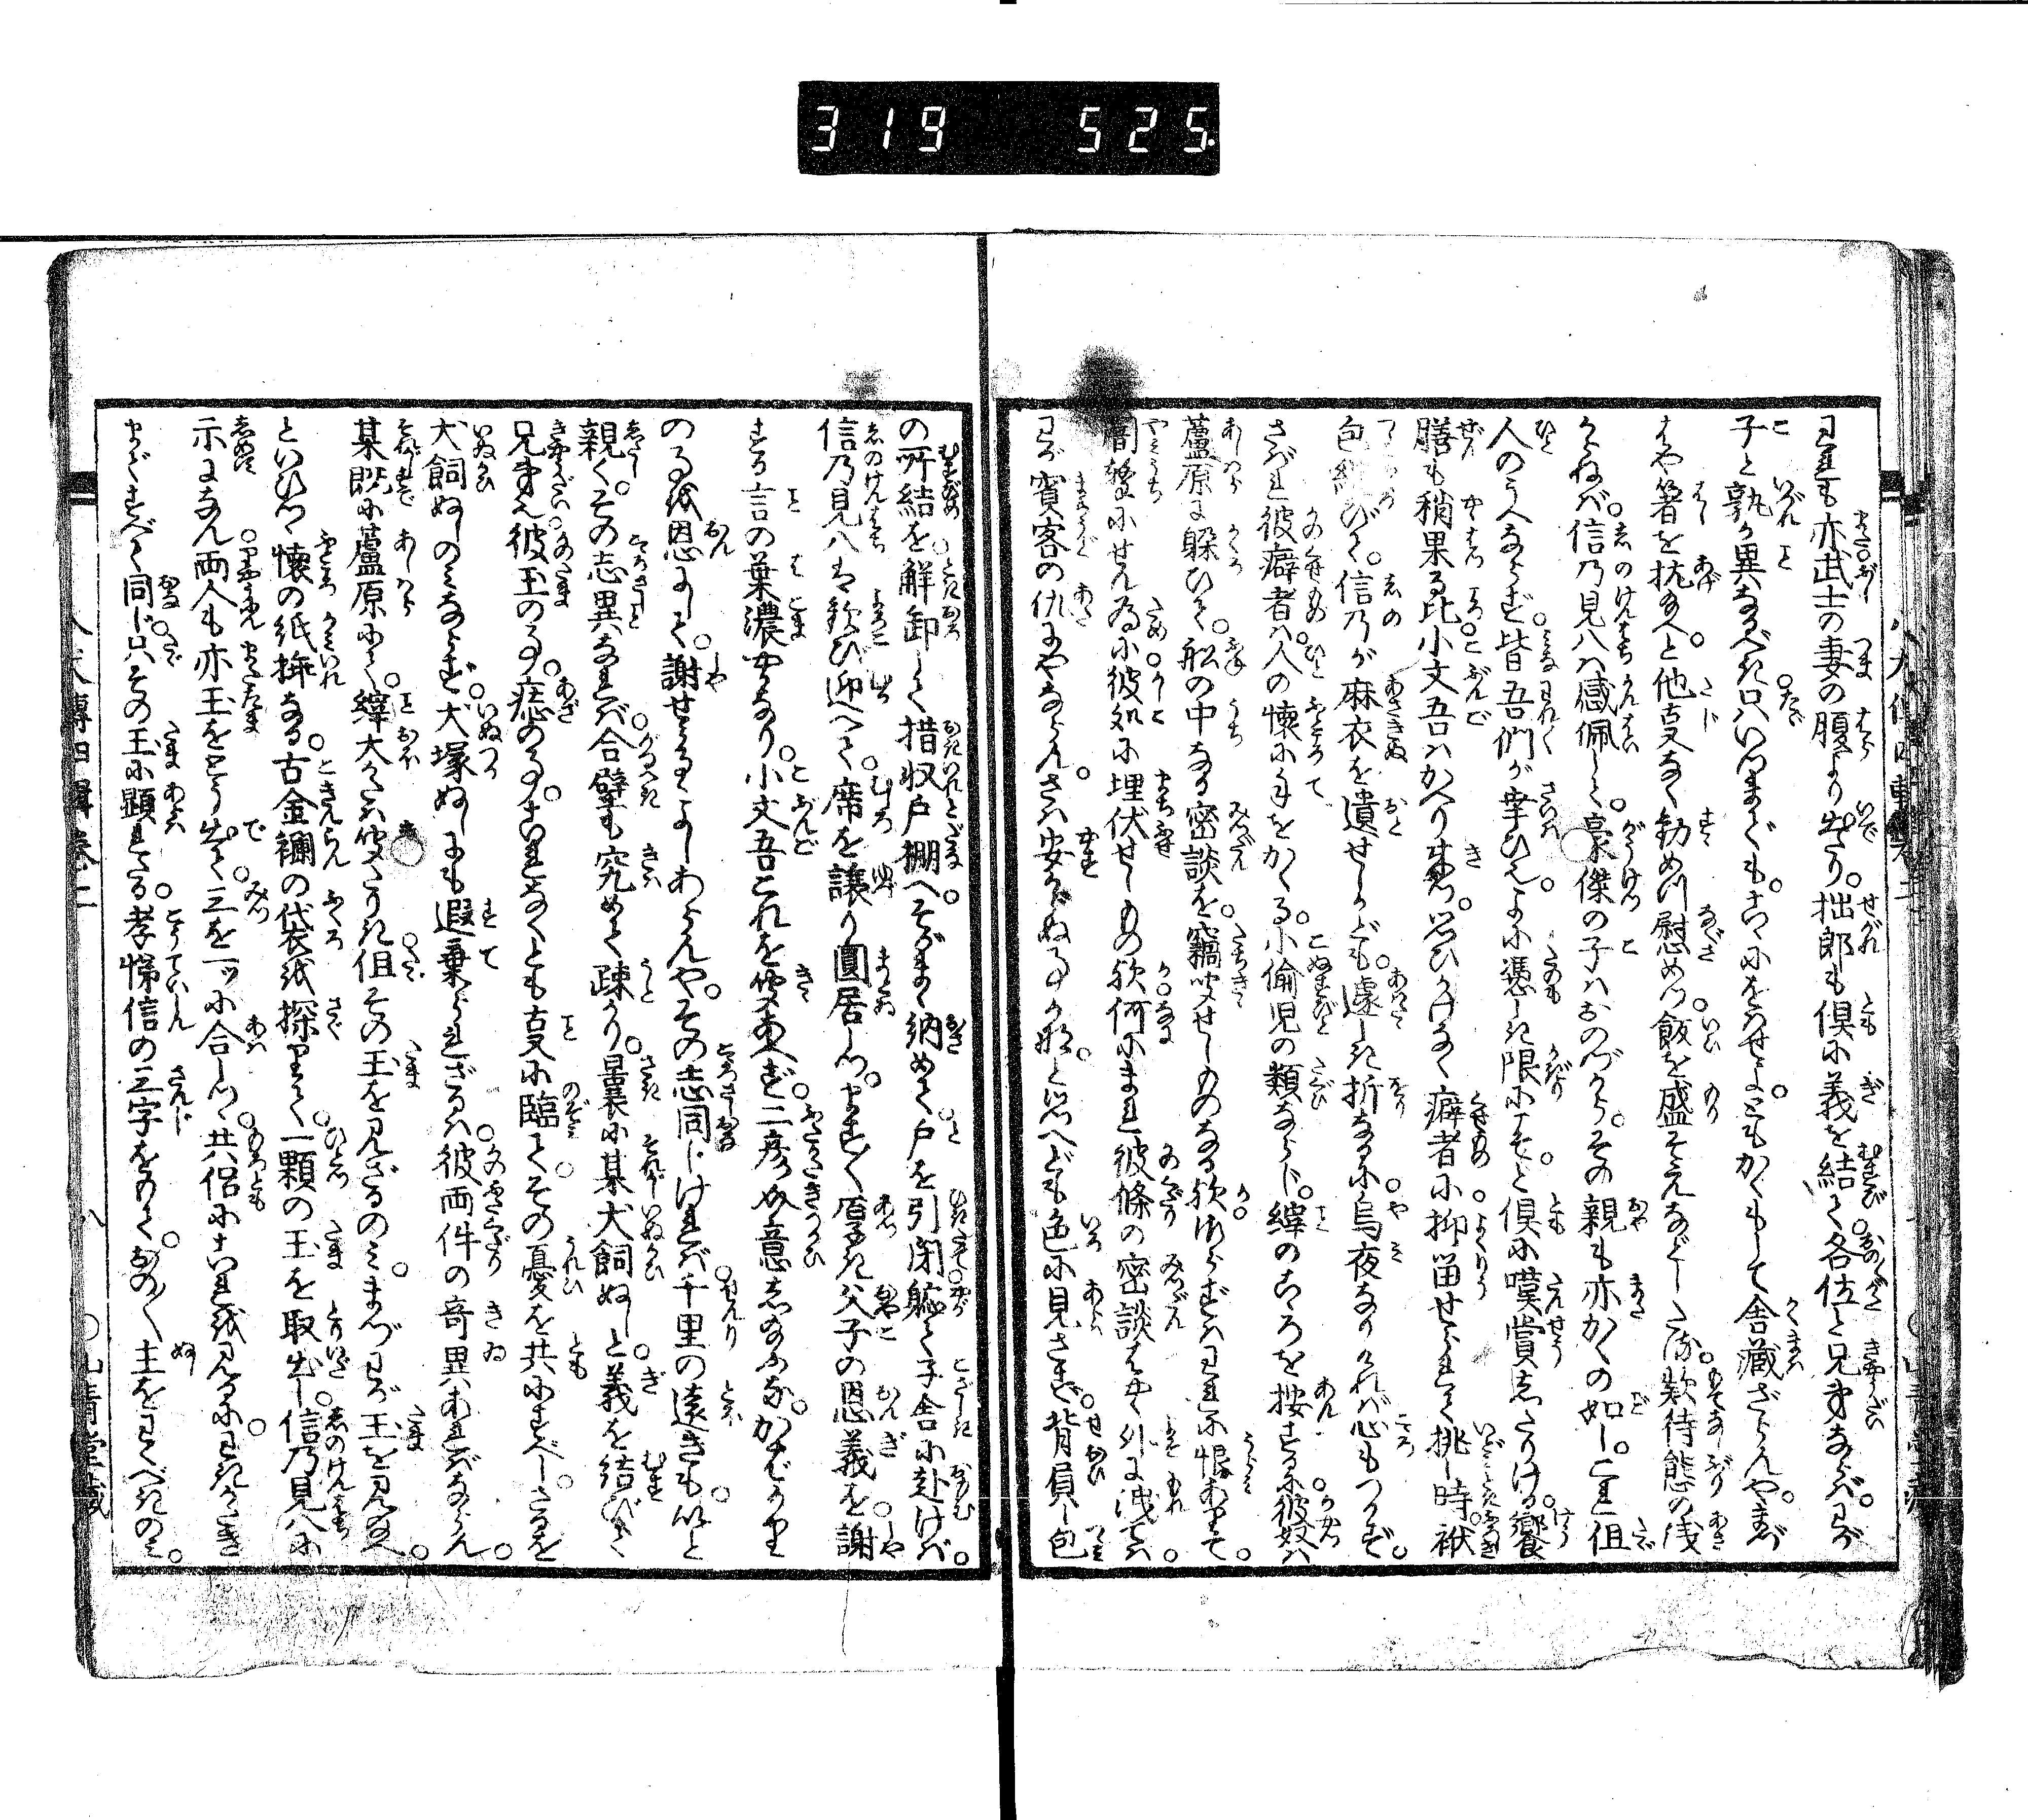 319 525
われも亦武士の妻の腹より出たり。拙郎も倶に義を結びて各位と兄弟ならば。わが
子と孰か異なるべき只いつまでも。こゝにをはせよ。ともかくもして舎藏ざらんや。まづ
はや箸を抗給へと他事なく勧めつ慰めつ飯を盛そえなどしたる。款待態の浅
からねば。信乃見八は感佩して。豪傑の子はおのづから。その親も亦かくの如し。これ但
人のうへならず。皆吾們が幸ひぞ。よに憑しき限りにこそと倶に嘆賞したりける。饗
膳も稍果る比小文吾はかへり来つ。思ひかけなく癖者に抑留せられて挑し時。袱
包綻びて。信乃が麻衣を遺せしかども。遽しき折なるに烏夜なりければ心もつかず。
されば彼癖者は。人の懐に手をかくる。小偸児の類ならじ。縡のこゝろを按ずるに彼奴は
蘆原に躱ひて。舩の中なる密談を。竊聞せしものなる歟。しからずはわれに恨ありて。
闇撃にせん為に彼処に埋伏せしもの歟何にまれ彼條の密談はやく外に洩ては
わが賓客の仇にやならん。さは安からぬ事かな。と思へども色に見さず。背負し包
の所結を。解卸して措収戸棚へ。そがまゝ納めて戸を引閉。軈て子舎に赴けば。
信乃見八は歓び迎へて。席を譲り圓居しつ。ますます厚き父子の恩義を。謝
する言の葉濃やかなり。小文吾これを聞あへず。二彦み意したまふな。かばかり
の事を恩にして。謝せらるゝよしあらんや。その志同じければ。千里の遠きも。いと
親く。その志異なれば。合壁も究めて疎かり。曩に某犬飼ぬしと。義を結びて
兄弟たり。彼玉の事。痣の事。これなくとも事に臨てその憂を共にすべし。さるを
犬飼ぬしのみならず。犬塚ぬしにも遐棄られざるは。彼両件の奇異あればならん。
某既に蘆原にて。縡大かたは聞たりき但その玉を見ざるのみ。まづわが玉を見給へ。
といひつゝ懐の紙挟なる。古金襴の袋を探りて。一顆の玉を取出し。信乃見八に
示すになん両人も亦玉をとう出て。三を一ッに合しつゝ。共侶にこれを見るに。わきがたき
まですべて同じ只その玉に顕れたる。孝悌信の三字をもて。おのおの主をわくべきのみ。
八犬傳四輯巻二 八 ○山青堂藏